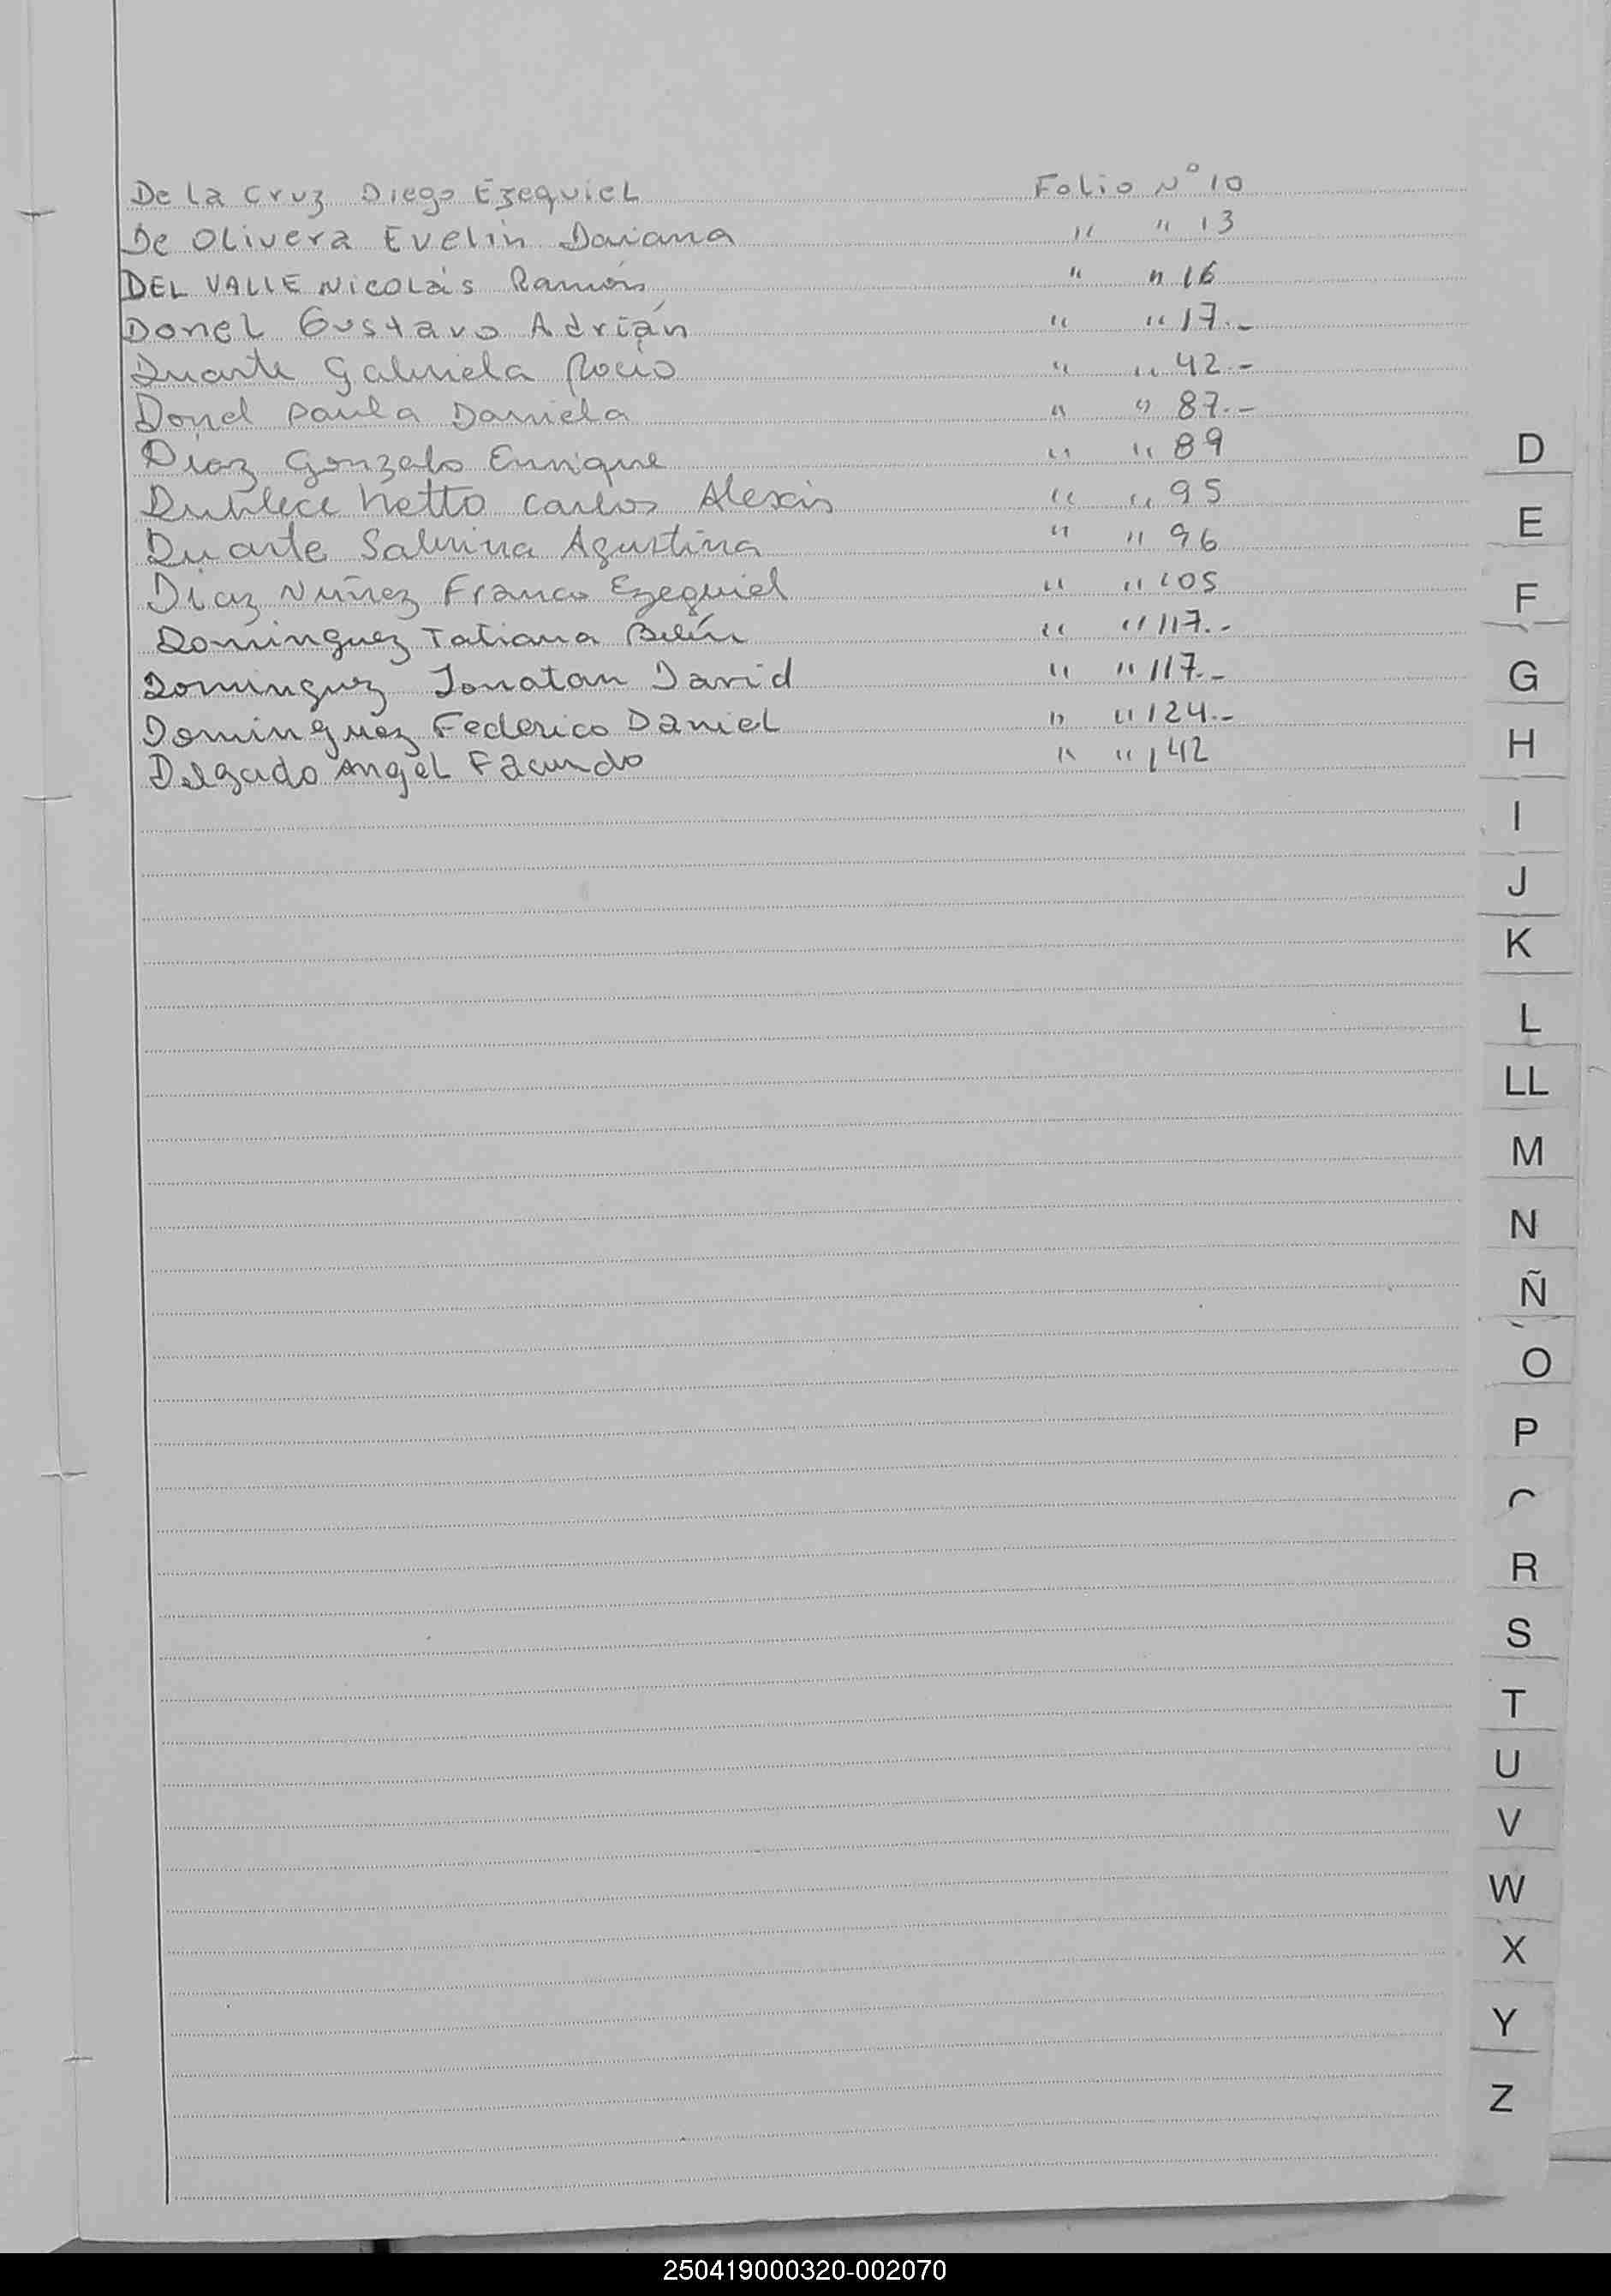 De la Cruz Diego Ezequiel Folio N° 10
De Olivera Evelin Daiana " " 13
DEL VALLE Nicolás Ramón " " 16
Donel Gustavo Adrián " " 17.-
Duarte Gabriela Rocio " " 42.-
Donel Paula Daniela " " 87.-
Diaz Gonzalo Enrique " " 89
Netto Carlos Alexis " " 95
Duarte Sabrina Agustina " " 96
Diaz Nuñez Franco Ezequiel " " 105
Dominguez Tatiana Belén " " 117.-
Dominguez Jonatan David " " 117.-
Dominguez Federico Daniel " " 124.-
Delgado Angel Facundo " " 142
D
E
F
G
H
I
J
K
L
LL
M
N
Ñ
O
P
R
S
T
U
V
W
X
Y
Z
250419000320-002070